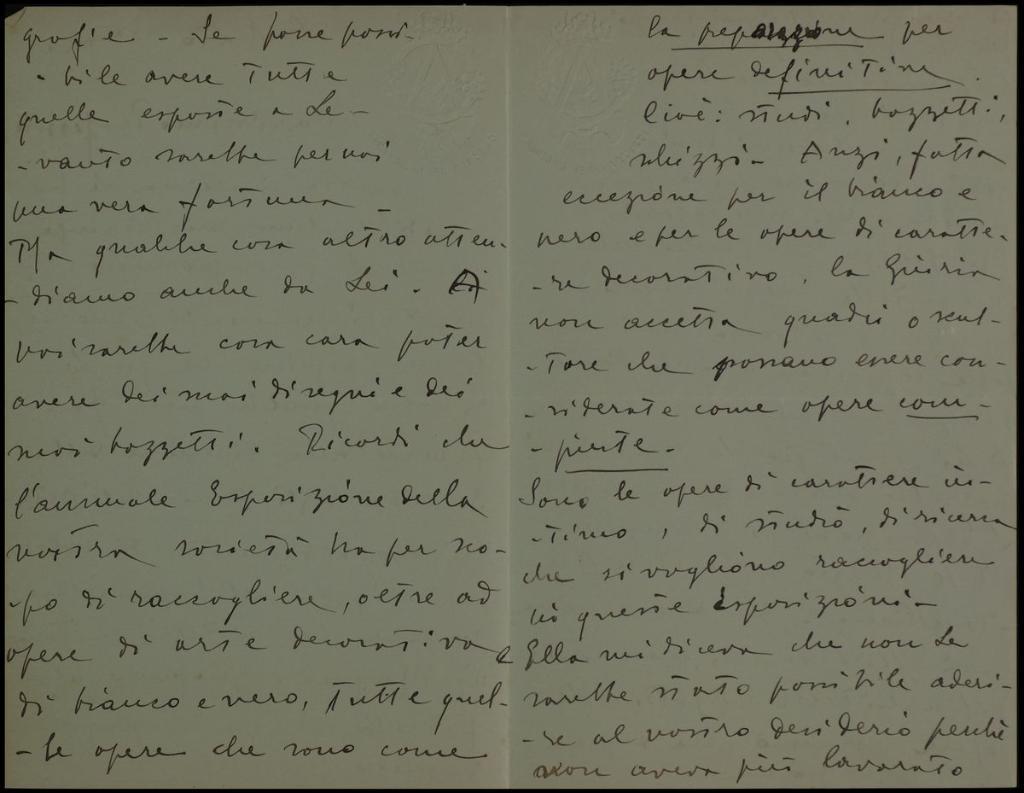 grafie - Se fosse possi-
-bile avere tutte
quelle esposte a Le-
-vanto sarebbe per noi
una vera fortuna -
Ma qualche cosa altro atten-
-diamo anche da Lei. A
noi sarebbe cosa cara poter
avere dei suoi disegni e dei
suoi bozzetti. Ricordi che
l'annuale Esposizione della
nostra società ha per sco-
-po di raccogliere, oltre ad
opere di arte decorativa e
di bianco e nero, tutte quel-
-le opere che sono come
la preparazione per
opere definitive.
Cioè: studi, bozzetti,
schizzi - Anzi, fatta
eccezione per il bianco e
nero e per le opere di caratte-
-re decorativo, la Giuria
non accetta quadri o scul-
-ture che possano essere con-
-siderate come opere com-
-piute. -
Sono le opere di carattere in-
-timo, di studio, di ricerca
che si vogliono raccogliere
in queste Esposizioni -
Ella mi diceva che non Le
sarebbe stato possibile aderi-
-re al nostro desiderio perchè
non aveva più lavorato